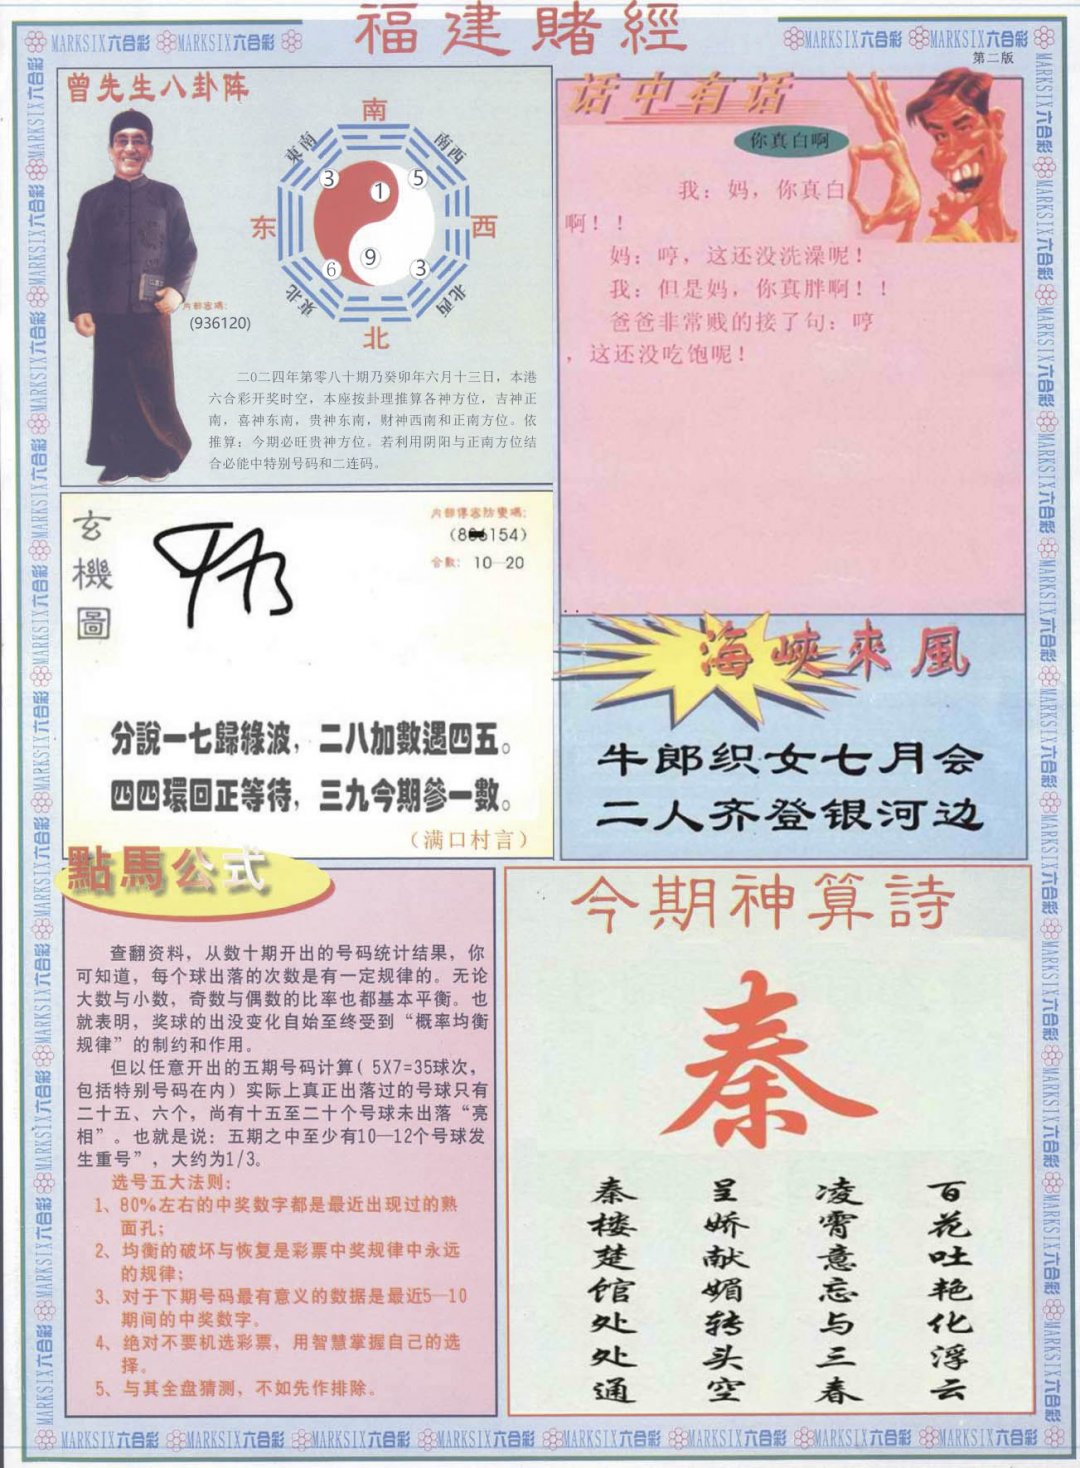 福建賭經
MARKSIX六合彩 MARKSIX六合彩
MARKSIX六合彩 MARKSIX六合彩
第二版
曾先生八卦阵
南
東南
南西
3
1
5
东
西
6
9
3
東北
北西
北
内部密碼:
(936120)
二0二四年第零八十期乃癸卯年六月十三日，本港
六合彩开奖时空，本座按卦理推算各神方位，吉神正
南，喜神东南，贵神东南，财神西南和正南方位。依
推算：今期必旺贵神方位。若利用阴阳与正南方位结
合必能中特别号码和二连码。
话中有话
你真白啊
我：妈，你真白
啊！！
妈：哼，这还没洗澡呢！
我：但是妈，你真胖啊！！
爸爸非常贱的接了句：哼
，这还没吃饱呢！
玄機圖
内部傳密防變碼:
154)
合數: 10—20
分說一七歸綠波，二八加數遇四五。
四四環回正等待，三九今期參一數。
（满口村言）
海峽來風
牛郎织女七月会
二人齐登银河边
點馬公式
查翻资料，从数十期开出的号码统计结果，你
可知道，每个球出落的次数是有一定规律的。无论
大数与小数，奇数与偶数的比率也都基本平衡。也
就表明，奖球的出没变化自始至终受到“概率均衡
规律”的制约和作用。
但以任意开出的五期号码计算( 5X7=35球次，
包括特别号码在内）实际上真正出落过的号球只有
二十五、六个，尚有十五至二十个号球未出落“亮
相”。也就是说：五期之中至少有10—12个号球发
生重号”，大约为1/3。
选号五大法则:
1、80%左右的中奖数字都是最近出现过的熟
面孔;
2、均衡的破坏与恢复是彩票中奖规律中永远
的规律;
3、对于下期号码最有意义的数据是最近5—10
期间的中奖数字。
4、绝对不要机选彩票，用智慧掌握自己的选
择。
5、与其全盘猜测，不如先作排除。
今期神算詩
秦
秦楼楚馆处处通
呈娇献媚转头空
凌霄意忘与三春
百花吐艳化浮云
MARKSIX六合彩 MARKSIX六合彩 MARKSIX六合彩 MARKSIX六合彩 MARKSIX六合彩 MARKSIX六合彩 MARKSIX六合彩 MARKSIX六合彩